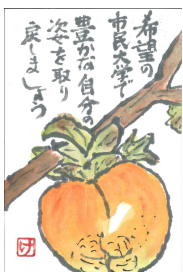 希望の
市民大学で
豊かな自分の
姿を取り
戻しましょう
け